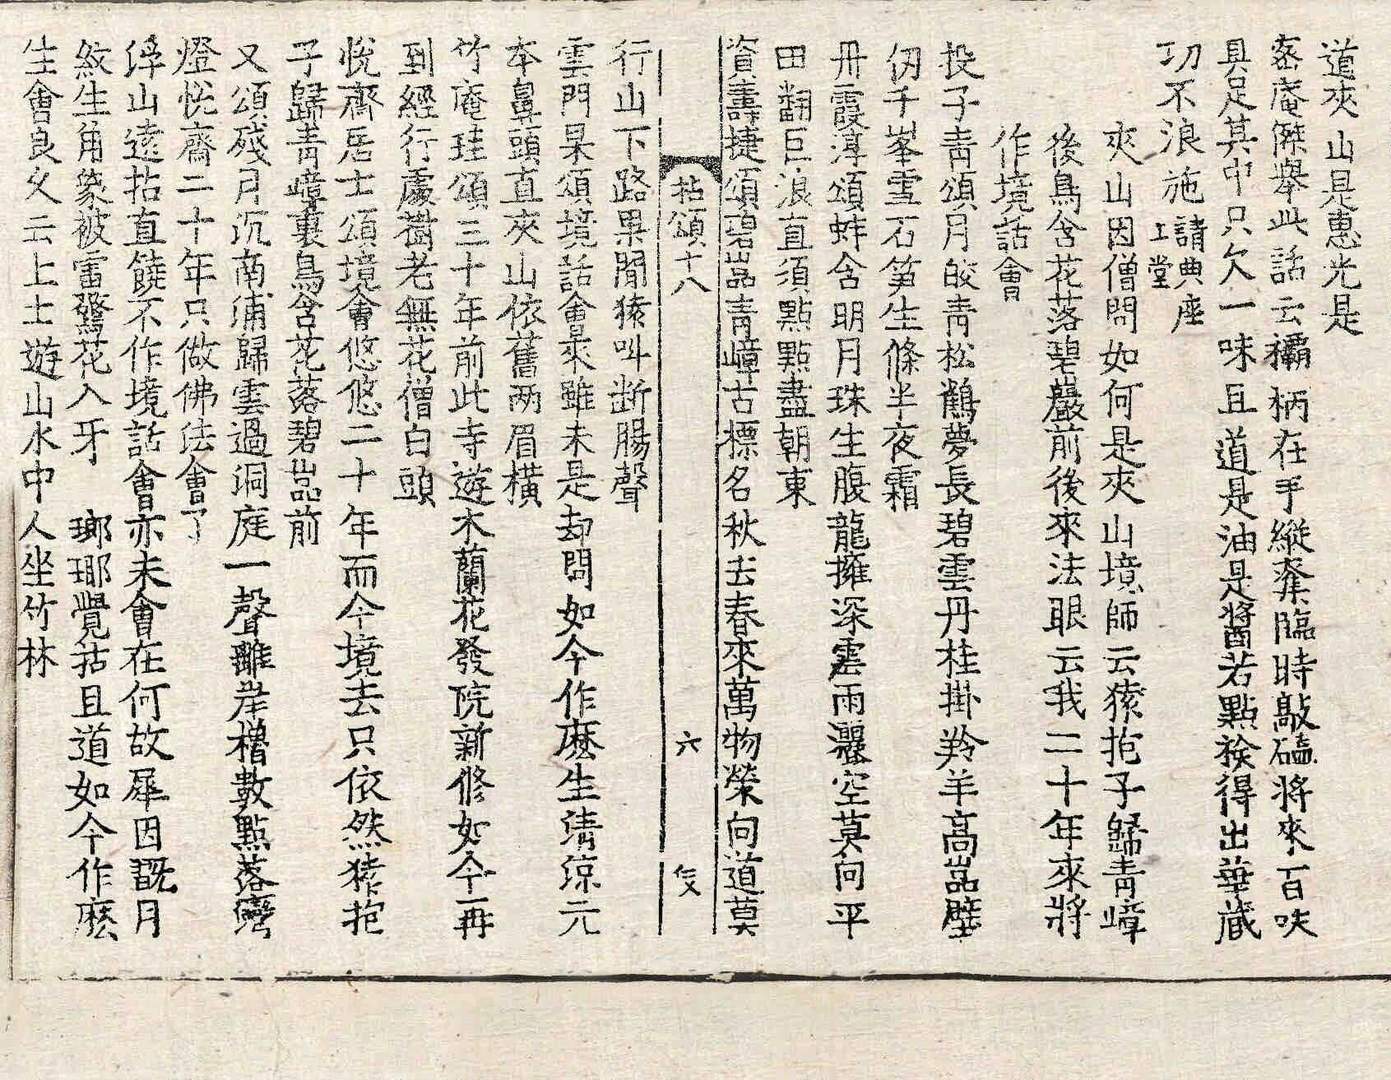 道夾山是惠光是
密庵傑擧此話云欛柄在手縱奪臨時敲磕將來百味
具足其中只欠一味且道是油是醬若點撿得出華藏
功不浪施請典座上堂
夾山因僧問如何是夾山境師云猿抱子歸靑嶂
後鳥含花落碧巖前後來法眼云我二十年來將
作境話會
投子靑頌月皎靑松鶴夢長碧雲丹桂掛羚羊高嵓壁
仞千峯雪石笋生條半夜霜
丹霞淳頌蚌含明月珠生腹龍擁深雲雨灑空莫向平
田翻巨浪直須點點盡朝東
資壽捷頌碧嵓靑嶂古標名秋去春來萬物榮向道莫
拈頌十八 六 仅
行山下路果聞猿叫断腸聲
雲門杲頌境話會來雖未是却問如今作麽生淸凉元
本鼻頭直夾山依舊两眉橫
竹庵珪頌三十年前此寺遊木蘭花發院新修如今再
到經行處樹老無花僧白頭
悅齋居士頌境會悠悠二十年而今境去只依然猿抱
子歸靑嶂裏鳥含花落碧嵓前
又頌殘月沉南浦歸雲過洞庭一聲離岸櫓數點落灣
燈悅齋二十年只做佛法會了
浮山遠拈直饒不作境話會亦未會在何故犀因翫月
紋生角象被雷驚花入牙 瑯瑘覺拈且道如今作麽
生會良久云上士遊山水中人坐竹林